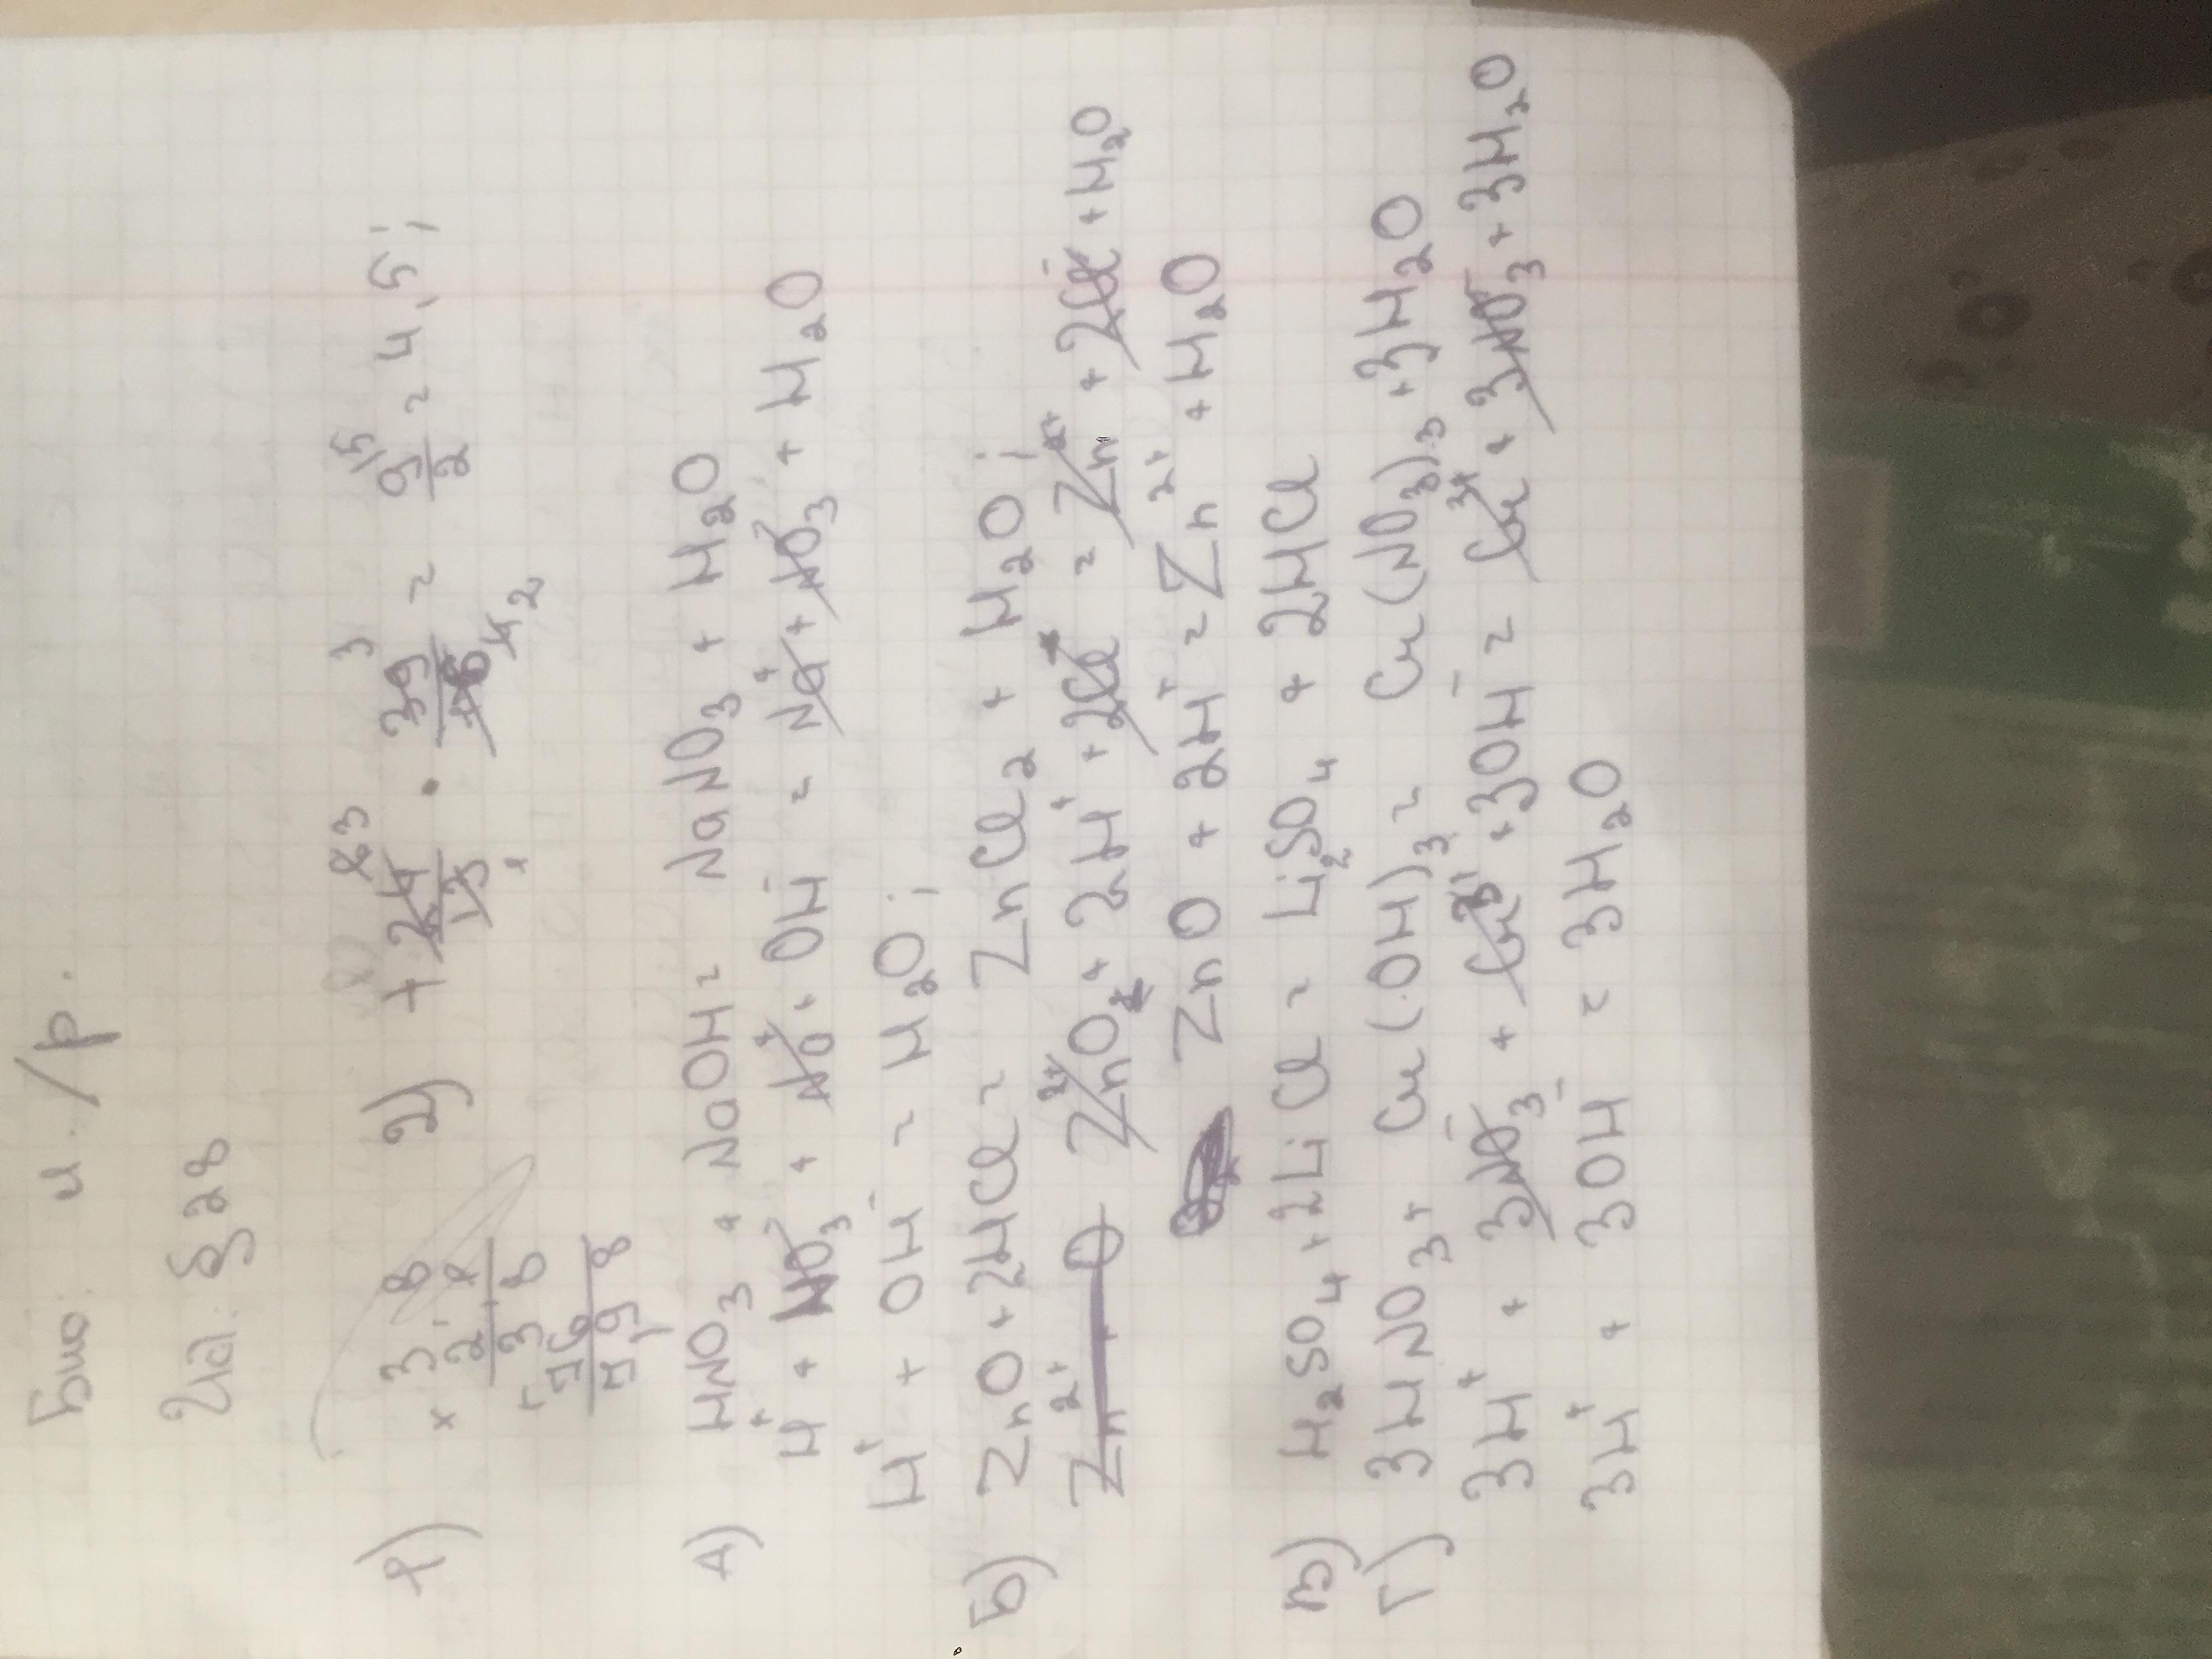 Био: и./р.
Ил. §28
1) × 38 2) + 24/13 · 39/16 = 9/2 = 4,5;
38
76
798
А) HNO₃ + NaOH = NaNO₃ + H₂O
H⁺ + NO₃⁻ + Na⁺ + OH⁻ = Na⁺ + NO₃⁻ + H₂O
H⁺ + OH⁻ = H₂O;
Б) ZnO + 2HCl = ZnCl₂ + H₂O;
Zn²⁺ + O ZnO + 2H⁺ + 2Cl⁻ = Zn²⁺ + 2Cl⁻ + H₂O
ZnO + 2H⁺ = Zn²⁺ + H₂O
В) H₂SO₄ + 2LiCl = Li₂SO₄ + 2HCl
Г) 3HNO₃ + Cr(OH)₃ = Cr(NO₃)₃ + 3H₂O
3H⁺ + 3NO₃⁻ + Cr³⁺ + 3OH⁻ = Cr³⁺ + 3NO₃⁻ + 3H₂O
3H⁺ + 3OH⁻ = 3H₂O